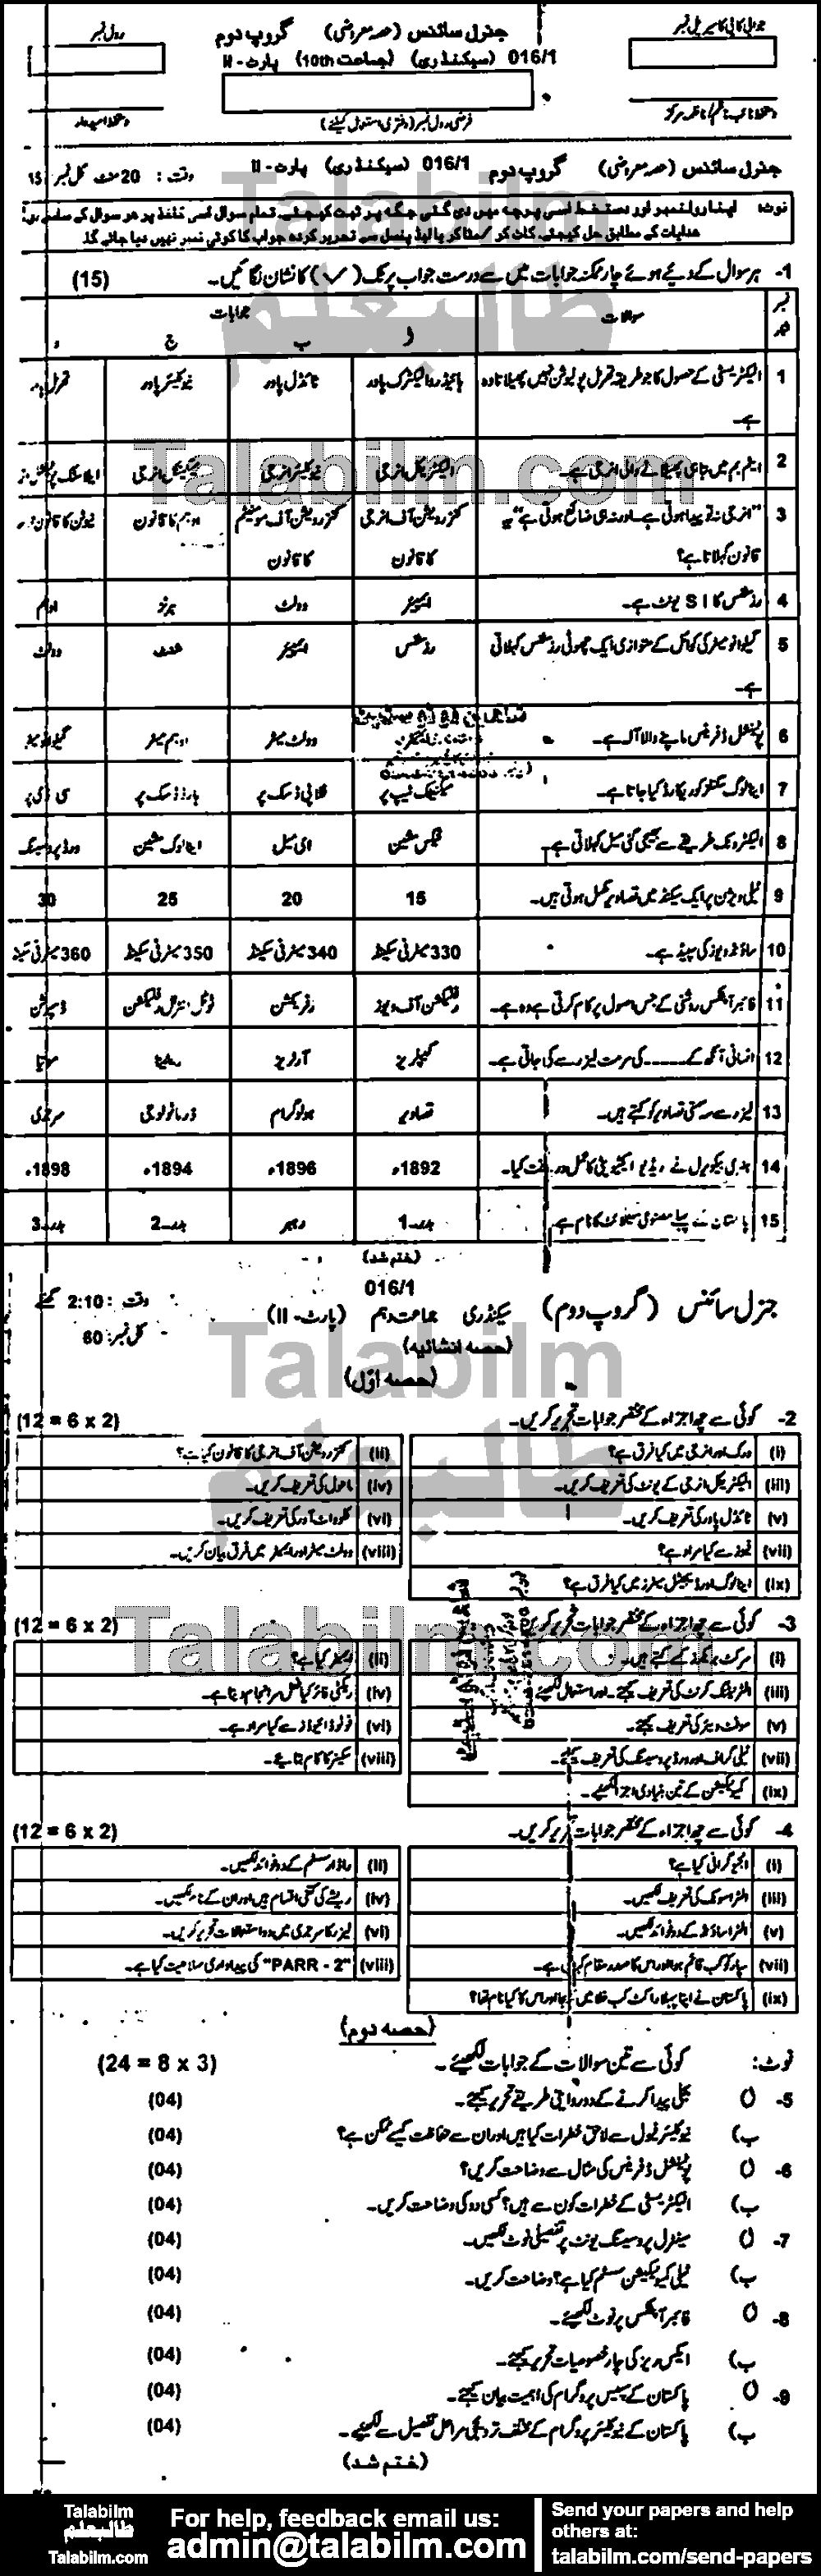 رول نمبر
جنرل سائنس (حصہ معروضی) گروپ دوم
جوابی کاپی کا سیریل نمبر
016/1 (سیکنڈری) (جماعت 10th) پارٹ - II
دستخط امیدوار
فرضی رول نمبر (دفتری استعمال کیلئے)
جنرل سائنس (حصہ معروضی) گروپ دوم 016/1 (سیکنڈری) پارٹ - II وقت : 20 منٹ کل نمبر: 15
نوٹ: اپنا رولنمبر اور دستخط اسی پرچہ میں دی گئی جگہ پر ثبت کیجئے۔ تمام سوال کسی کاغذ پر ہر سوال کے سامنے دی
ھدایات کے مطابق حل کیجئے۔ کاٹ کر / مٹا کر یا لیڈ پنسل سے تحریر کردہ جواب کا کوئی نمبر نہیں دیا جائے گا۔
1- ہر سوال کے دئیے ہوئے چار ممکنہ جوابات میں سے درست جواب پر ٹک (✓) کا نشان لگائیں۔ (15)
نمبر شمار سوالات جوابات
ا ب ج د
1 الیکٹریسٹی کے حصول کا جو طریقہ تھرمل پولیوشن نہیں پھیلاتا وہ ہے۔ ہائیڈرو الیکٹرک پاور ٹائڈل پاور نیوکلیئر پاور تھرمل پاور
2 ایٹم بم میں تباہی پھیلانے والی انرجی ہے۔ الیکٹریکل انرجی نیوکلیئر انرجی میکینیکل انرجی ایلاسٹک پوٹینشل
3 "انرجی نہ تو پیدا ہوتی ہے۔ اور نہ ہی ضائع ہوتی ہے" یہ قانون کہلاتا ہے؟ کنزرویشن آف انرجی کا قانون کنزرویشن آف مومینٹم کا قانون اوہم کا قانون نیوٹن کا قانون
4 رزسٹنس کا SI یونٹ ہے۔ ایمپیئر وولٹ ہرٹز اوہم
5 گیلوانومیٹر کی کوائل کے متوازی ایک چھوٹی رزسٹنس کہلاتی ہے۔ رزسٹنس ایمپیئر شنٹ وولٹ
6 پوٹینشل ڈفرینس ماپنے والا آلہ ہے۔ وولٹ میٹر اوہم میٹر گیلوانومیٹر
7 اینالوگ سگنلز کو ریکارڈ کیا جاتا ہے۔ میگنیٹک ٹیپ پر فلاپی ڈسک پر ہارڈ ڈسک پر سی ڈی پر
8 الیکٹرونک طریقے سے بھیجی گئی میل کہلاتی ہے۔ فیکس مشین ای میل اینالوگ مشین ورڈ پروسیسنگ
9 ٹیلی ویژن پر ایک سیکنڈ میں تصاویر مکمل ہوتی ہیں۔ 15 20 25 30
10 ساؤنڈ ویوز کی سپیڈ ہے۔ 330 میٹر فی سیکنڈ 340 میٹر فی سیکنڈ 350 میٹر فی سیکنڈ 360 میٹر فی سیکنڈ
11 فائبر آپٹکس روشنی کے جس اصول پر کام کرتی ہے وہ ہے۔ رفلیکشن آف ویوز رفریکشن ٹوٹل انٹرنل رفلیکشن ڈسپرشن
12 انسانی آنکھ کے ----- کی مرمت لیزر سے کی جاتی ہے۔ کیپلریز آرٹریز ریٹینا
13 لیزر سے سہ سمتی تصاویر کو کہتے ہیں۔ تصاویر ہولوگرام ڈرماٹولوجی سرجری
14 ہنری بیکیورل نے ریڈیو ایکٹیویٹی کا عمل دریافت کیا۔ 1892ء 1896ء 1894ء 1898ء
15 پاکستان کے پہلے مصنوعی سیٹلائٹ کا نام ہے۔ بدر-1 رہبر بدر-2 بدر-3
(ختم شد)
016/1
جنرل سائنس (گروپ دوم) سیکنڈری جماعت دہم (پارٹ - II) وقت : 2:10 گھنٹے
(حصہ انشائیہ) کل نمبر: 60
(حصہ اوّل)
2- کوئی سے چھ اجزاء کے مختصر جوابات تحریر کریں۔ (12 = 6 x 2)
(i) ورک اور انرجی میں کیا فرق ہے؟ (ii) کنزرویشن آف انرجی کا قانون کیا ہے؟
(iii) الیکٹریکل انرجی کے یونٹ کی تعریف کریں۔ (iv) ماحول کی تعریف کریں۔
(v) ٹائڈل پاور کی تعریف کریں۔ (vi) کلوواٹ آور کی تعریف کریں۔
(vii) فیوز سے کیا مراد ہے؟ (viii) وولٹ میٹر اور ایمیٹر میں فرق بیان کریں۔
(ix) اینالوگ اور ڈیجیٹل میٹرز میں کیا فرق ہے؟
3- کوئی سے چھ اجزاء کے مختصر جوابات تحریر کریں۔ (12 = 6 x 2)
(i) سرکٹ بریکر کسے کہتے ہیں۔ (ii) ایمیٹر کیا ہے؟
(iii) الٹرنیٹنگ کرنٹ کی تعریف کیجئے۔ اور استعمال لکھیئے (iv) ریکٹی فائر کیا عمل سرانجام دیتا ہے۔
(v) سوفٹ ویئر کی تعریف کیجئے۔ (vi) فوٹو ڈائیوڈز سے کیا مراد ہے۔
(vii) ٹیلی گراف اور ورڈ پروسیسنگ کی تعریف کیجئے۔ (viii) سکینر کا کام بتائیے۔
(ix) کمیونیکیشن کے تین بنیادی اجزاء لکھیئے۔
4- کوئی سے چھ اجزاء کے مختصر جوابات تحریر کریں۔ (12 = 6 x 2)
(i) انجیوگرافی کیا ہے؟ (ii) راڈار سسٹم کے دو فوائد لکھیں۔
(iii) الٹراسونک کی تعریف لکھیں۔ (iv) ریشے کی کتنی اقسام ہیں اور ان کے نام لکھیں۔
(v) الٹراساؤنڈ کے دو فوائد لکھیں۔ (vi) لیزر کا سرجری میں دو استعمالات تحریر کریں۔
(vii) سپارکو کب قائم ہوا اور اس کا صدر مقام کہاں ہے۔ (viii) "PARR - 2" کی پیداواری صلاحیت کیا ہے۔
(ix) پاکستان نے اپنا پہلا راکٹ کب خلا میں بھیجا اور اس کا کیا نام تھا؟
(حصہ دوم)
نوٹ: کوئی سے تین سوالات کے جوابات لکھیئے۔ (24 = 8 x 3)
5- ا) بجلی پیدا کرنے کے دو روایتی طریقے تحریر کیجئے۔ (04)
ب) نیوکلیئر فیول سے لاحق خطرات کیا ہیں اور ان سے حفاظت کیسے ممکن ہے؟ (04)
6- ا) پوٹینشل ڈفرینس کی مثال سے وضاحت کریں؟ (04)
ب) الیکٹریسٹی کے خطرات کون سے ہیں؟ کسی دو کی وضاحت کریں۔ (04)
7- ا) سینٹرل پروسیسنگ یونٹ پر تفصیلی نوٹ لکھیں۔ (04)
ب) ٹیلی کمیونیکیشن سسٹم کیا ہے؟ وضاحت کریں۔ (04)
8- ا) فائبر آپٹکس پر نوٹ لکھیئے۔ (04)
ب) ایکس ریز کی چار خصوصیات تحریر کیجئے۔ (04)
9- ا) پاکستان کے سپیس پروگرام کی اہمیت بیان کیجئے۔ (04)
ب) پاکستان کے نیوکلیئر پروگرام کے مختلف تدریجی مراحل تفصیل سے لکھیئے۔ (04)
(ختم شد)
Talabilm
طالبعلم
Talabilm.com
Talabilm
طالبعلم
Talabilm.com
Talabilm
طالبعلم
Talabilm.com
For help, feedback email us:
admin@talabilm.com
Send your papers and help
others at:
talabilm.com/send-papers